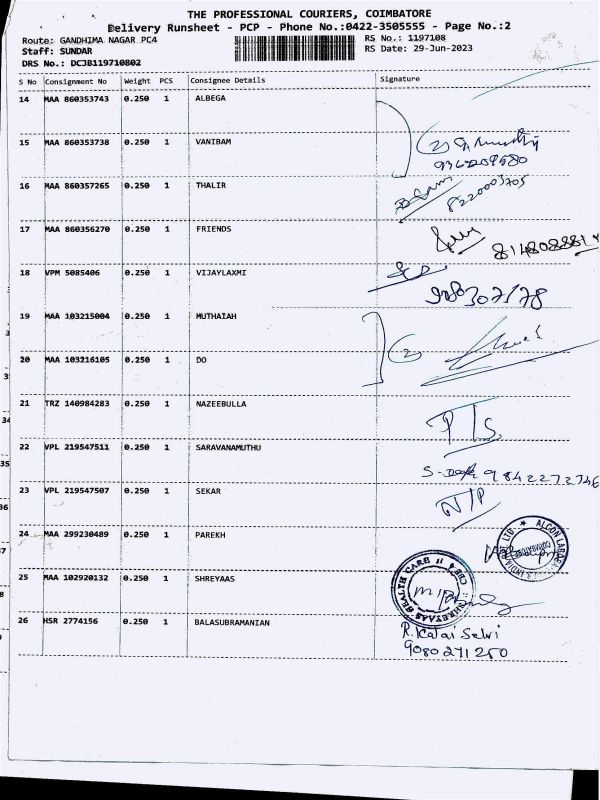 THE PROFESSIONAL COURIERS, COIMBATORE
Delivery Runsheet - PCP - Phone No.:0422-3505555 - Page No.:2
Route: GANDHIMA NAGAR PC4 RS No.: 1197108
Staff: SUNDAR RS Date: 29-Jun-2023
DRS No.: DCJB119710802
S No Consignment No Weight PCS Consignee Details Signature
14 MAA 860353743 0.250 1 ALBEGA
15 MAA 860353738 0.250 1 VANIBAM (2)
16 MAA 860357265 0.250 1 THALIR
17 MAA 860356270 0.250 1 FRIENDS
18 VPM 5085406 0.250 1 VIJAYLAXMI
19 MAA 103215004 0.250 1 MUTHAIAH
20 MAA 103216105 0.250 1 DO (2)
21 TRZ 140984283 0.250 1 NAZEEBULLA P/S
22 VPL 219547511 0.250 1 SARAVANAMUTHU
23 VPL 219547507 0.250 1 SEKAR N/P
24 MAA 299230489 0.250 1 PAREKH
25 MAA 102920132 0.250 1 SHREYAAS
26 HSR 2774156 0.250 1 BALASUBRAMANIAN
R. Kalai Selvi
9080271250